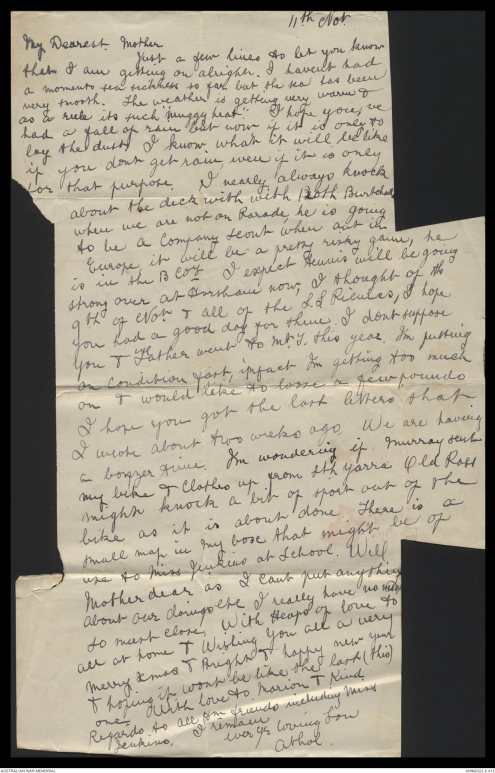 11th Nov.
My Dearest Mother
Just a few lines to let you know
that I am getting on alright. I havent had
a moments sea sickness so far but the sea has been
very smooth. The weather is getting very warm &
as a rule its such "muggy heat". I hope you've
had a fall of rain but now if it is only to
lay the dust. I know what it will be like
if you dont get rain, even if it is only
for that purpose. I nearly always knock
about the deck with with Both
when we are not on Parade, he is going
to be a Company Scout when out in
Europe, it will be a pretty risky game, he
is in the B Coy. I expect Tennis will be going
strong over at Horsham now, I thought of the
9th of Nov & all of the S.S Picnics, I hope
you had a good day for them. I dont suppose
you & Father went to Mt. J. this year. Im putting
on condition fast, infact Im getting too much
on & would like to loose a few pounds
I hope you got the last letters that
I wrote about two weeks ago. We are having
a bonzer time. Im wondering if Murray sent
my bike & Clothes up from Sth Yarra Old Ross
might knock a bit of sport out of the
bike as it is about done There is a
small map in my box that might be of
use to Miss Jenkins at School. Well
Mother dear as I cant put anything
about our doings etc I really have no news
so must close. With Heaps of love to
all at home & Wishing You all a very
merry Xmas & Bright & happy new year
& hoping it wont be like the last (this)
one. With love to Marion & Kind
Regards to all friends including Miss
Jenkins. I remain
ever yr loving Son
Athol.
AUSTRALIAN WAR MEMORIAL